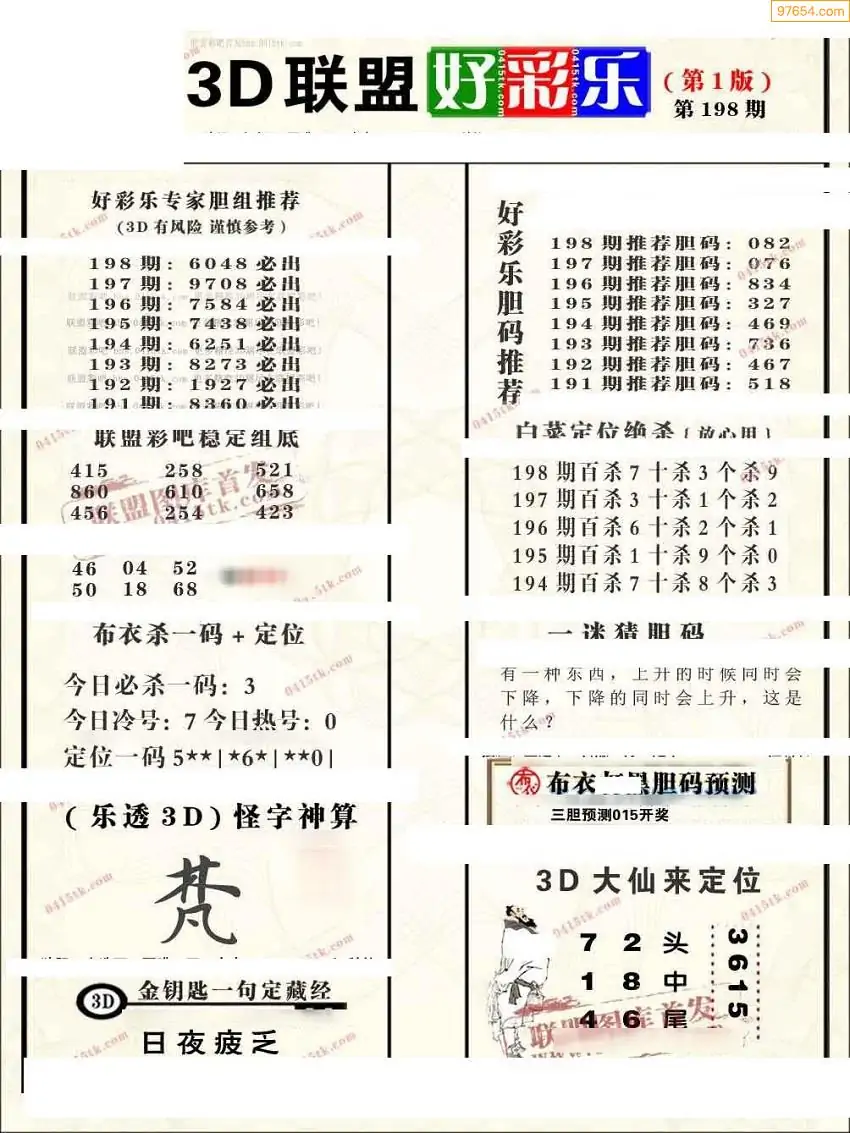 97654.com
3D联盟 好彩乐 (第1版)
第198期
好彩乐专家胆组推荐
(3D有风险 谨慎参考)
198期: 6048必出
197期: 9708必出
196期: 7584必出
195期: 7438必出
194期: 6251必出
193期: 8273必出
192期: 1927必出
191期: 8360必出
联盟彩吧稳定组底
415 258 521
860 610 658
456 254 423
46 04 52
50 18 68
布衣杀一码+定位
今日必杀一码: 3
今日冷号: 7 今日热号: 0
定位一码 5**|*6*|**0|
(乐透3D)怪字神算
梵
3D 金钥匙一句定藏经
日夜疲乏
好彩乐胆码推荐
198期推荐胆码: 082
197期推荐胆码: 076
196期推荐胆码: 834
195期推荐胆码: 327
194期推荐胆码: 469
193期推荐胆码: 736
192期推荐胆码: 467
191期推荐胆码: 518
白菜定位绝杀(放心用)
198期百杀7十杀3个杀9
197期百杀3十杀1个杀2
196期百杀6十杀2个杀1
195期百杀1十杀9个杀0
194期百杀7十杀8个杀3
一迷猜胆码
有一种东西, 上升的时候同时会
下降, 下降的同时会上升, 这是
什么?
布衣 胆码预测
三胆预测015开奖
3D大仙来定位
7 2 头
1 8 中
4 6 尾
3615
联盟图库首发
0415tk.com